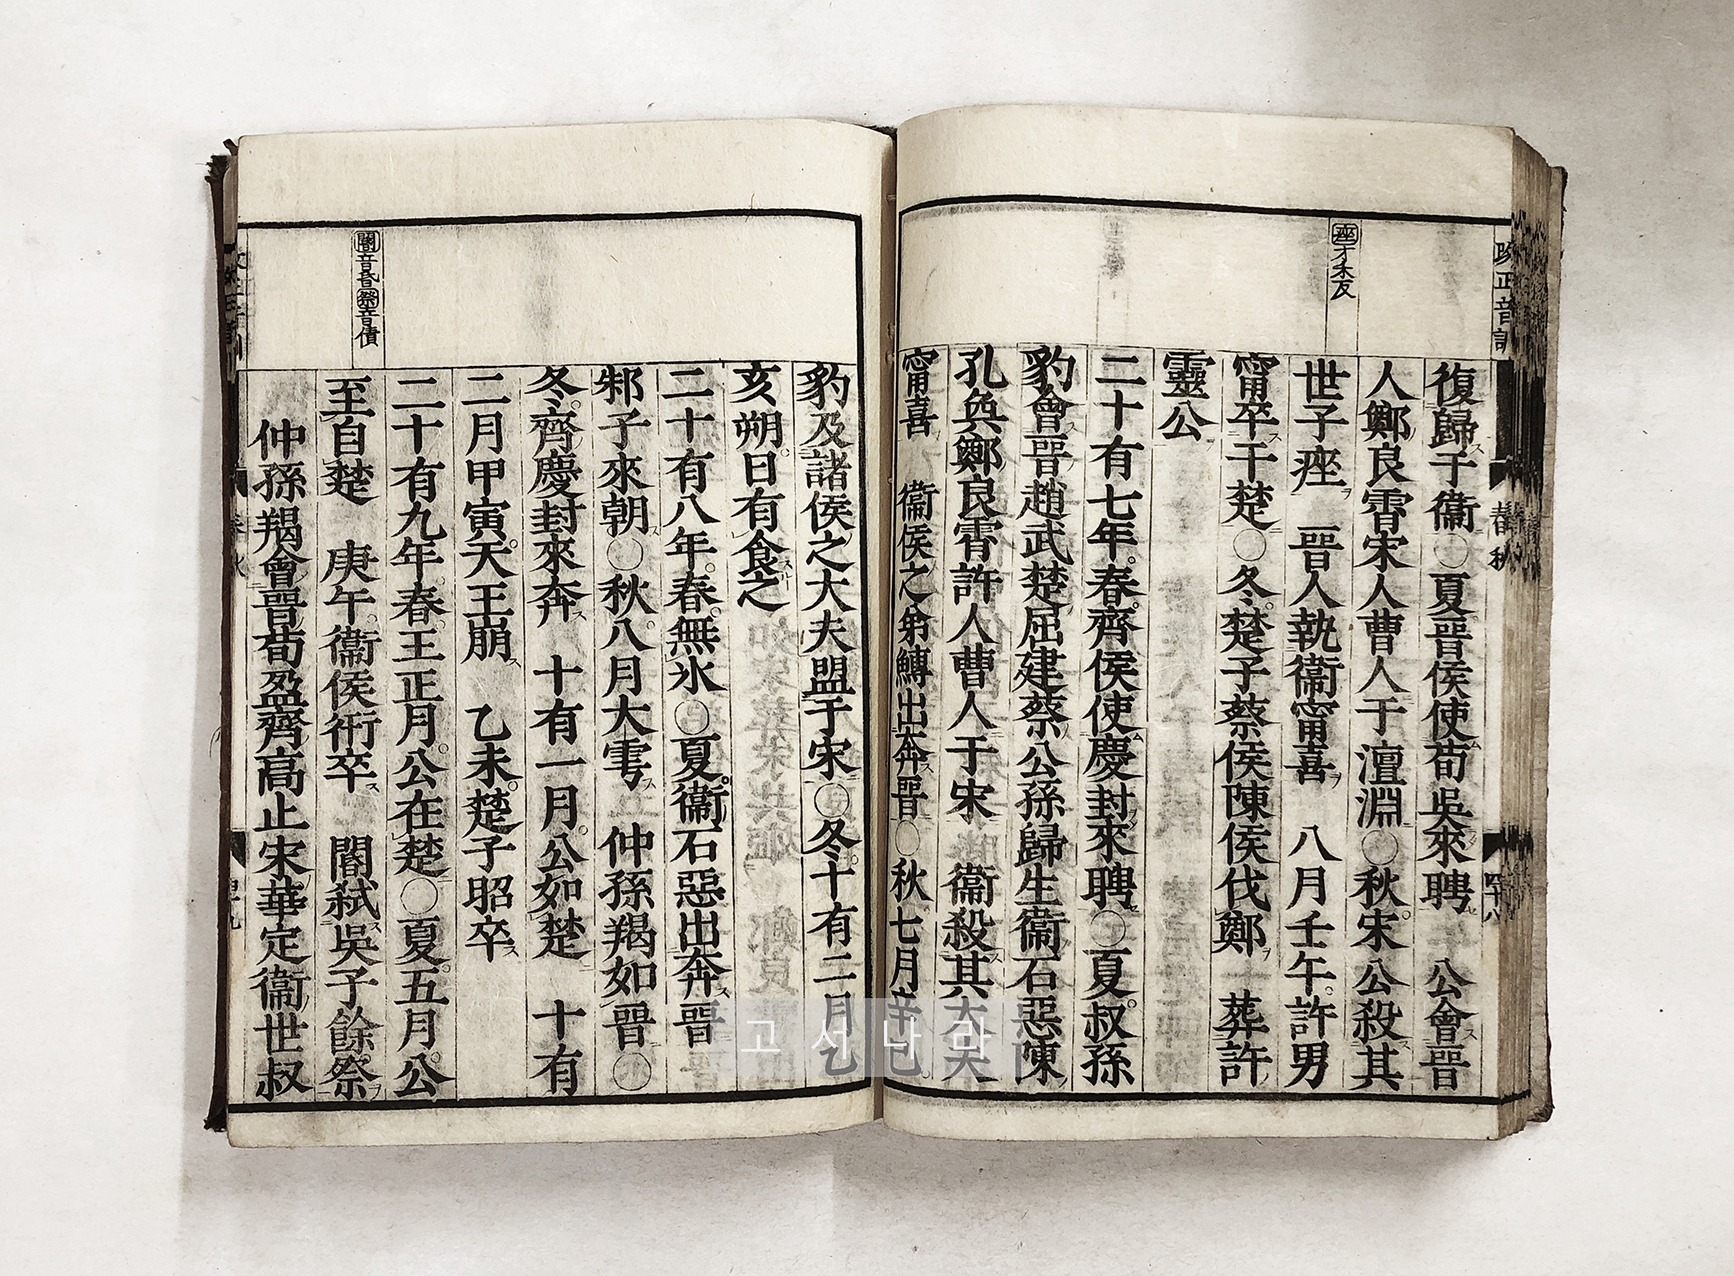 痤才禾反
復歸于衞○夏晉侯使荀吳來聘 公會晉
人鄭良霄宋人曹人于澶淵○秋宋公殺其
世子痤 晉人執衞甯喜 八月壬午許男
甯卒于楚○冬楚子蔡侯陳侯伐鄭 葬許
靈公
二十有七年春齊侯使慶封來聘○夏叔孫
豹會晉趙武楚屈建蔡公孫歸生衞石惡陳
孔奐鄭良霄許人曹人于宋 衞殺其大夫
甯喜 衞侯之弟鱄出奔晉○秋七月辛巳
豹及諸侯之大夫盟于宋○冬十有二月乙
亥朔日有食之
二十有八年春無氷○夏衞石惡出奔晉
邾子來朝○秋八月大雩 仲孫羯如晉○
冬齊慶封來奔 十有一月公如楚 十有
二月甲寅天王崩 乙未楚子昭卒
二十有九年春王正月公在楚○夏五月公
至自楚 庚午衞侯衎卒 閽弑吳子餘祭
仲孫羯會晉荀盈齊高止宋華定衞世叔
閽音昏祭音債
改正音訓
春秋
四十八
고서나라